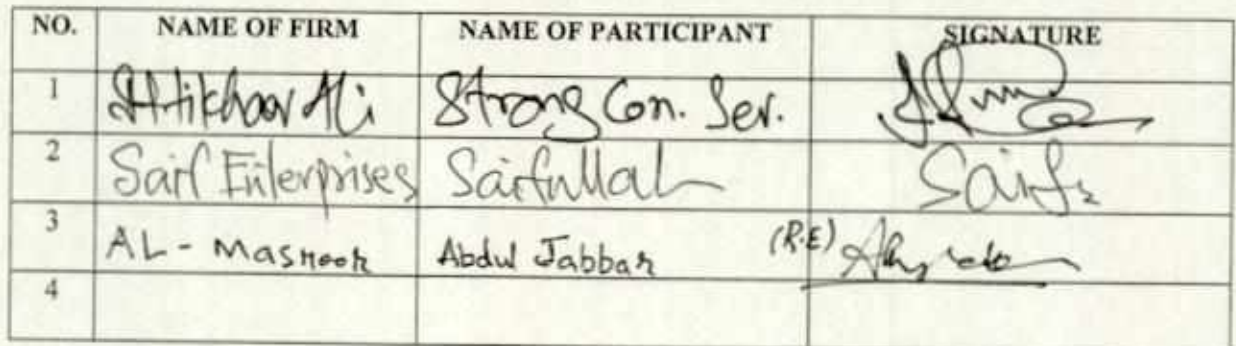 NO. NAME OF FIRM NAME OF PARTICIPANT SIGNATURE
1 Iftikhar Ali Strong Con. Ser.
2 Saif Enterprises Saifullah Saif
3 AL - Masroor Abdul Jabbar (R.E)
4